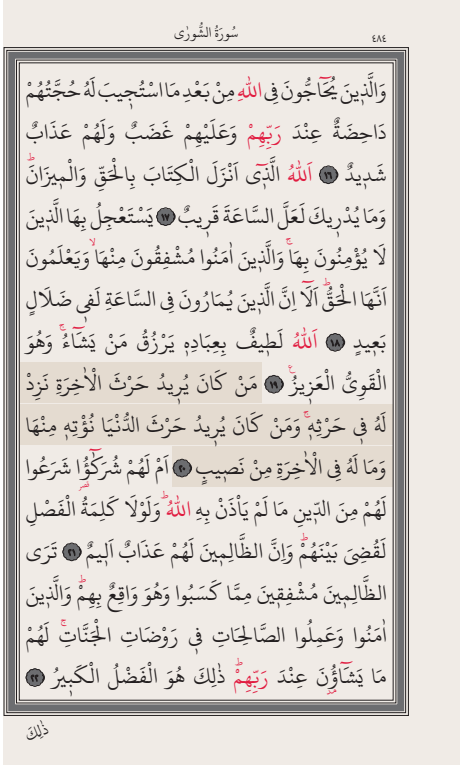 سُورَةُ الشُّورٰى
٤٨٤
وَالَّذ۪ينَ يُحَٓاجُّونَ فِي اللّٰهِ مِنْ بَعْدِ مَا اسْتُج۪يبَ لَهُ حُجَّتُهُمْ
دَاحِضَةٌ عِنْدَ رَبِّهِمْ وَعَلَيْهِمْ غَضَبٌ وَلَهُمْ عَذَابٌ
شَد۪يدٌ ١٦ اَللّٰهُ الَّذ۪ٓي اَنْزَلَ الْكِتَابَ بِالْحَقِّ وَالْم۪يزَانَۜ
وَمَا يُدْر۪يكَ لَعَلَّ السَّاعَةَ قَر۪يبٌ ١٧ يَسْتَعْجِلُ بِهَا الَّذ۪ينَ
لَا يُؤْمِنُونَ بِهَاۚ وَالَّذ۪ينَ اٰمَنُوا مُشْفِقُونَ مِنْهَاۙ وَيَعْلَمُونَ
اَنَّهَا الْحَقُّۜ اَلَٓا اِنَّ الَّذ۪ينَ يُمَارُونَ فِي السَّاعَةِ لَف۪ي ضَلَالٍ
بَع۪يدٍ ١٨ اَللّٰهُ لَط۪يفٌ بِعِبَادِه۪ يَرْزُقُ مَنْ يَشَٓاءُۚ وَهُوَ
الْقَوِيُّ الْعَز۪يزُ۟ ١٩ مَنْ كَانَ يُر۪يدُ حَرْثَ الْاٰخِرَةِ نَزِدْ
لَهُ ف۪ي حَرْثِه۪ۚ وَمَنْ كَانَ يُر۪يدُ حَرْثَ الدُّنْيَا نُؤْتِه۪ مِنْهَا
وَمَا لَهُ فِي الْاٰخِرَةِ مِنْ نَص۪يبٍ ٢٠ اَمْ لَهُمْ شُرَكٰٓؤُ۬ا شَرَعُوا
لَهُمْ مِنَ الدّ۪ينِ مَا لَمْ يَأْذَنْ بِهِ اللّٰهُۜ وَلَوْلَا كَلِمَةُ الْفَصْلِ
لَقُضِيَ بَيْنَهُمْۜ وَاِنَّ الظَّالِم۪ينَ لَهُمْ عَذَابٌ اَل۪يمٌ ٢١ تَرَى
الظَّالِم۪ينَ مُشْفِق۪ينَ مِمَّا كَسَبُوا وَهُوَ وَاقِعٌ بِهِمْۜ وَالَّذ۪ينَ
اٰمَنُوا وَعَمِلُوا الصَّالِحَاتِ ف۪ي رَوْضَاتِ الْجَنَّاتِۚ لَهُمْ
مَا يَشَٓاؤُ۫نَ عِنْدَ رَبِّهِمْۜ ذٰلِكَ هُوَ الْفَضْلُ الْكَب۪يرُ ٢٢
ذٰلِكَ